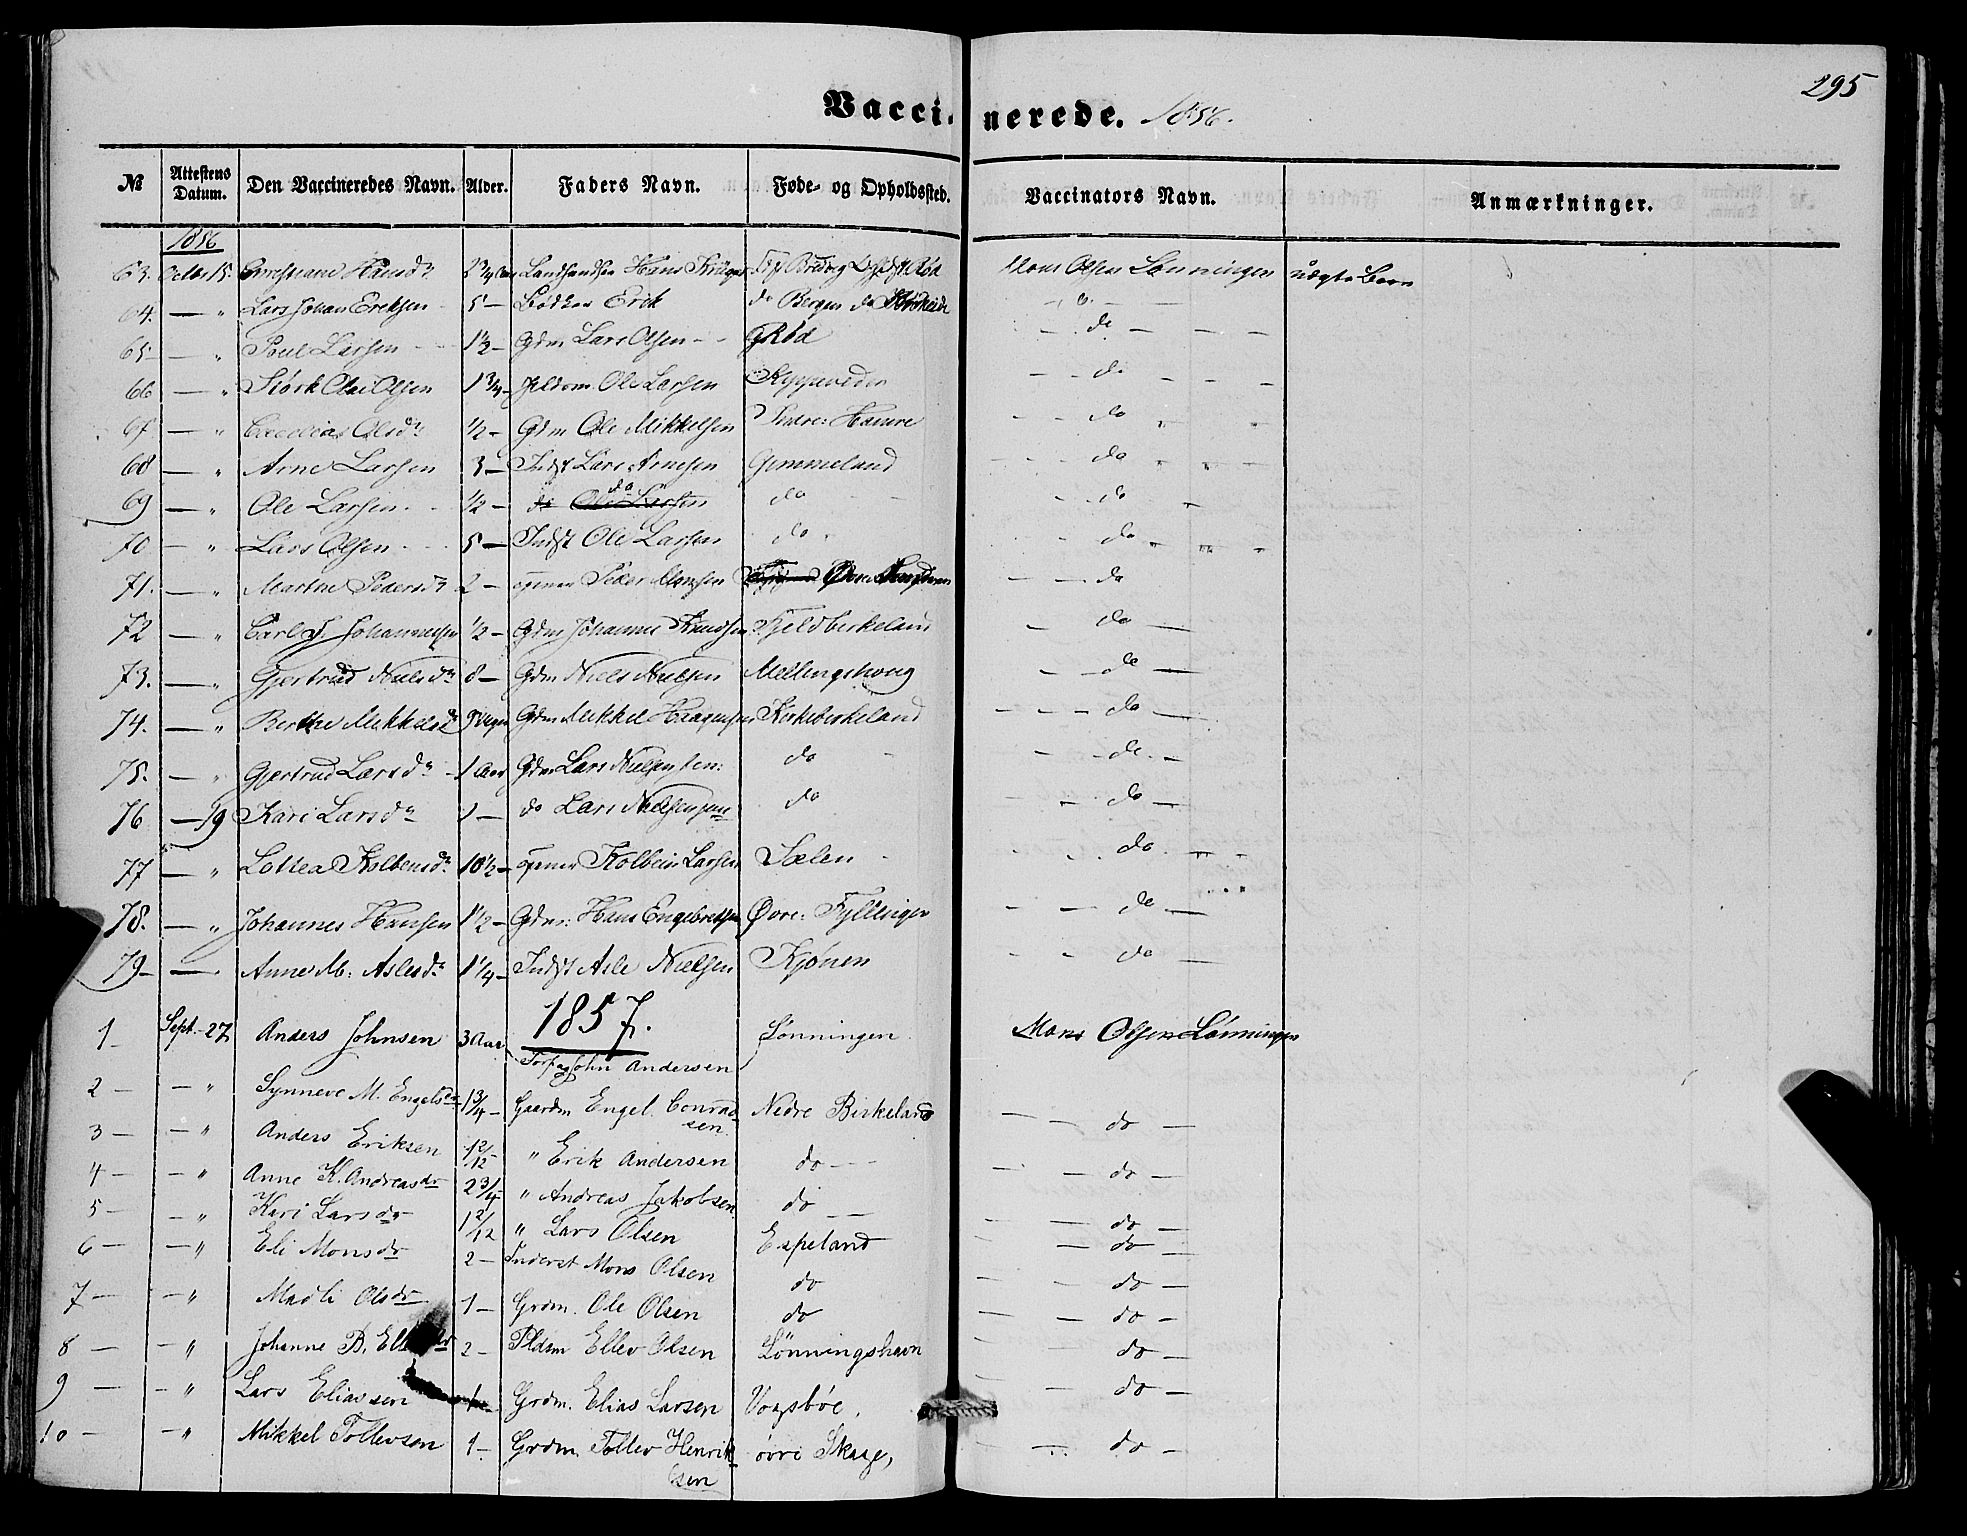 295
Vaccinerede. 1856.
№ Attestens Datum. Den Vaccineredes Navn. Alder. Faders Navn. Føde- og Opholdssted. Vaccinators Navn. Anmærkninger.
1856
63. Octbr 15. Hansdr 2 3/4 Aar Hans Krüger Rød Mons Olsen Lønningen uægte Barn
64. — " Lars Johan Eriksen 5 — Erik do Bergen do
65 — " Poul Larsen 1 1/2 — Gdm Lars Olsen Rød — do —
66 — " Størk Olai Olsen 1 3/4 — Ole Larsen — do —
67 — " Olsdr 1/2 — Gdm Ole Mikkelsen Indre: Hamre — do "
68 — " Arne Larsen 3 — Indst Lars Arnesen Gjemmeland — do "
69 — " Ole Larsen 1/2 — do do do — do "
70 — " Lars Olsen 5 — Indst Ole Larsen do — do "
71. — " Marthe Pedersdr 2 — Peder Monsen Øvre — do
72 — " Carl J Johannesen 1/2 — Gdm Johannes Knudsen Fjeldbirkeland — do —
73. — " Gjertrud Nielsdr 8 — Gdm Niels Nielsen Mellingshoug — do —
74. — " Berthe Mikkelsdr Gdm Mikkel Haagensen Kirkebirkeland — do —
75. — " Gjertrud Larsdr 1 Aar Gdm Lars Nielsen sen: do — do —
76 — 19 Kari Larsdr 1 — do Lars Nielsen jun do — do —
77 — " Lottea Kolbensdr 10 1/2 — Kolbein Larsen Sælen — do "
78. — " Johannes Hansen 1 1/2 — Gdm: Hans Engebretsen Øvre: Fyllingen — do —
79 — — Anne M: Aslesdr 1 1/4 — Indst Asle Nielsen Kjønen — do —
1857.
1 — Sept. 27 Anders Johnsen 3 Aar John Andersen Lønningen Mons Olsen Lønningen
2 — — " Synneve M. Engelsdr 1 3/4 — Gaardm Engel Conradsen Nedre Birkeland — do —
3 — — " Anders Eriksen 1 2/12 — " Erik Andersen do — — do —
4 — — " Anne K. Andreasdr 2 3/4 — " Andreas Jakobsen do — — do —
5 — — " Kari Larsdr 1 2/12 " Lars Olsen Espeland — do —
6 — — " Eli Monsdr 2 — Inderst Mons Olsen do — do —
7 — — " Madli Olsdr 1 — Grdm. Ole Olsen do — do —
8 — — " Johanne B. 2 — Pldsm Ellev Olsen Lønningshavn — do —
9 — — " Lars Eliassen 1 — Grdm. Elias Larsen Vogsbøe, — do —
10 — — " Mikkel Tollevsen 1 — Grdm Tollev Henriksen øvre Skage, — do —